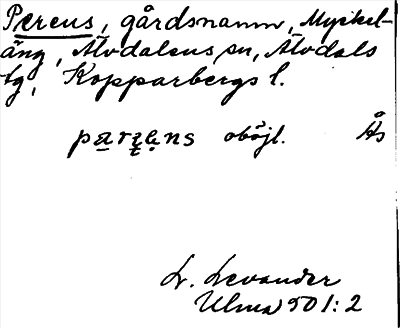 Pereus, gårdsnamn, Myckel-
äng, Älvdalens sn, Älvdals
tg, Kopparbergs l.
oböjl. Ås
L. Levander
Ulma 501:2